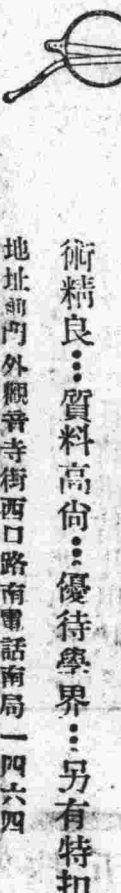 術精良⋯質料高尙⋯優待學界⋯另有特扣
地址前門外觀音寺街西口路南電話南局一四六四